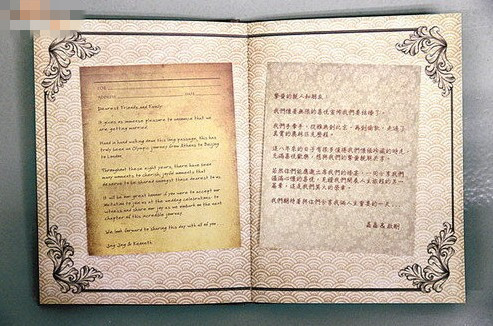 FOR
ADDRESS
DATE
Dearest Friends and Family
It gives us immense pleasure to announce that we
are getting married.
Hand in hand walking down this long passage, this has
truly been an Olympic journey from Athens to Beijing
to London.
Throughout these eight years, there have been
many moments to cherish, joyful moments that
deserve to be shared amongst those dearest to us.
It will be our great honour if you were to accept our
invitation to join us at the wedding celebrations, to
witness and share our joy as we embark on the next
chapter of this incredible journey.
We look forward to sharing this day with all of you
Jay Jay & Kenneth
摯愛的親人和朋友：
我們懷著無限的喜悅宣佈我們要結婚了。
我們手牽手，從雅典到北京，再到倫敦，走過了
真實的奧林匹克歷程。
這八年來的日子有很多值得我們慢慢珍藏的時光，
充滿喜悅歡樂，想與我們的摯愛親朋分享。
若然你們能應邀出席我們的婚宴，一同分享我們
滿滿的喜悅，見證我們踏入人生旅程的另一
篇章，這是我們莫大的榮幸。
我們期待著與你們分享我倆人生重要的一天…